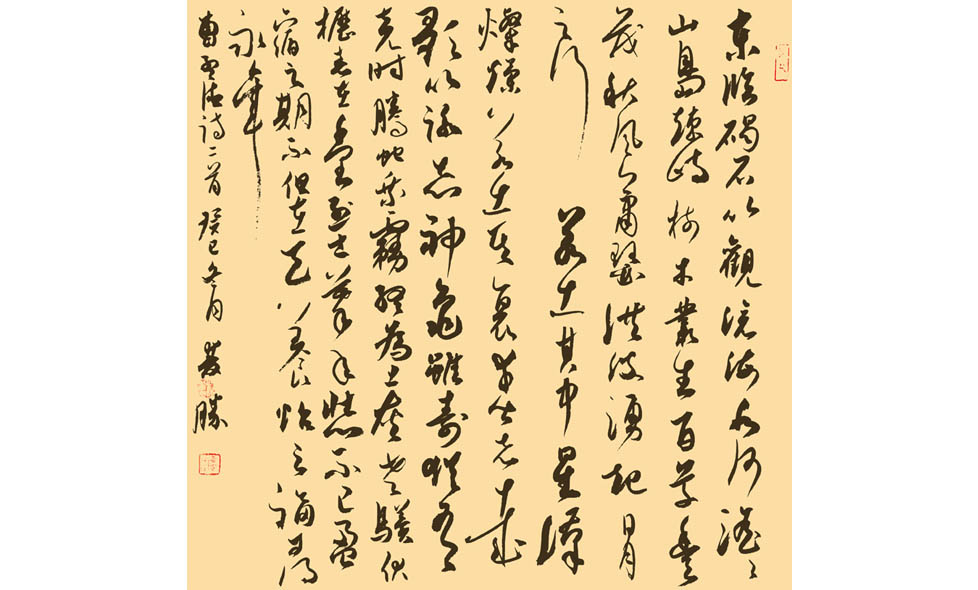 東臨碣石以觀滄海水何澹〻
山島竦峙樹木叢生百草豐
茂秋風蕭瑟洪波湧起日月
之行 若出其中星漢
燦爛若出其裏幸甚至哉
歌以詠志神龜雖壽猶有
竟時騰蛇乘霧終爲土灰老驥伏
櫪志在千里烈士暮年壯心不已盈
縮之期不但在天養怡之福可得
永年
曹孟德詩二首 癸巳冬月 勝